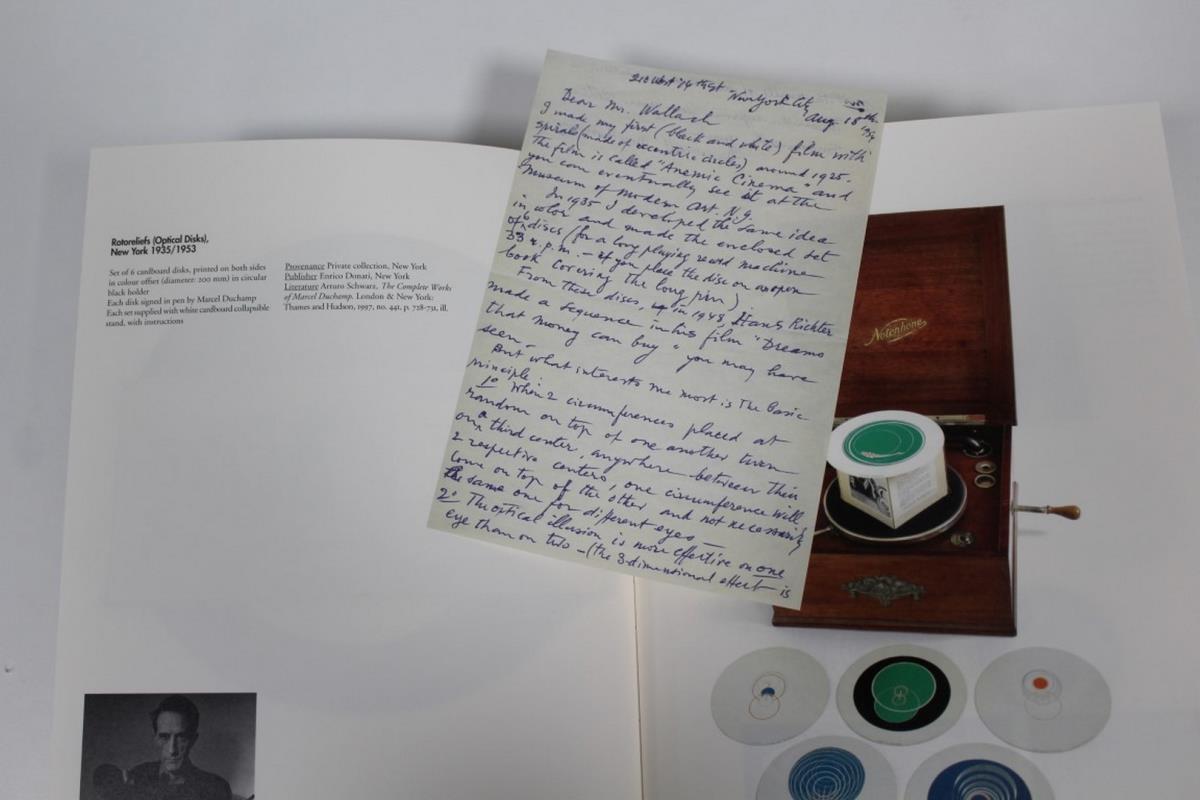 Rotoreliefs (Optical Disks),
New York 1935/1953
Set of 6 cardboard disks, printed on both sides
in colour offset (diameter: 200 mm) in circular
black holder
Each disk signed in pen by Marcel Duchamp
Each set supplied with white cardboard collapsible
stand, with instructions
Provenance Private collection, New York
Publisher Enrico Donati, New York
Literature Arturo Schwarz, The Complete Works
of Marcel Duchamp. London & New York:
Thames and Hudson, 1997, no. 441, p. 728-731, ill.
210 West 14th St
New York City
Aug. 18th
Dear Mr. Wallach
I made my first (black and white) film with
spiral (made of eccentric circles) around 1925.
The film is called "Anemic Cinema" and
you can eventually see it at the
Museum of Modern Art. N.Y.
In 1935 I developed the same idea
in color and made the enclosed set
of 6 discs (for a long playing record machine
33 r.p.m. — if you place the disc on an open
book covering the long pin)
From these discs, in 1943, Hans Richter
made a sequence in his film "Dreams
that money can buy" you may have
seen —
But what interests me most is the basic
principle:
1º When 2 circumferences placed at
random on top of one another turn
on a third center, anywhere between their
2 respective centers, one circumference will
come on top of the other and not necessarily
the same one for different eyes —
2º The optical illusion is more effective on one
eye than on two — (the 3-dimensional effect is
Notenhone